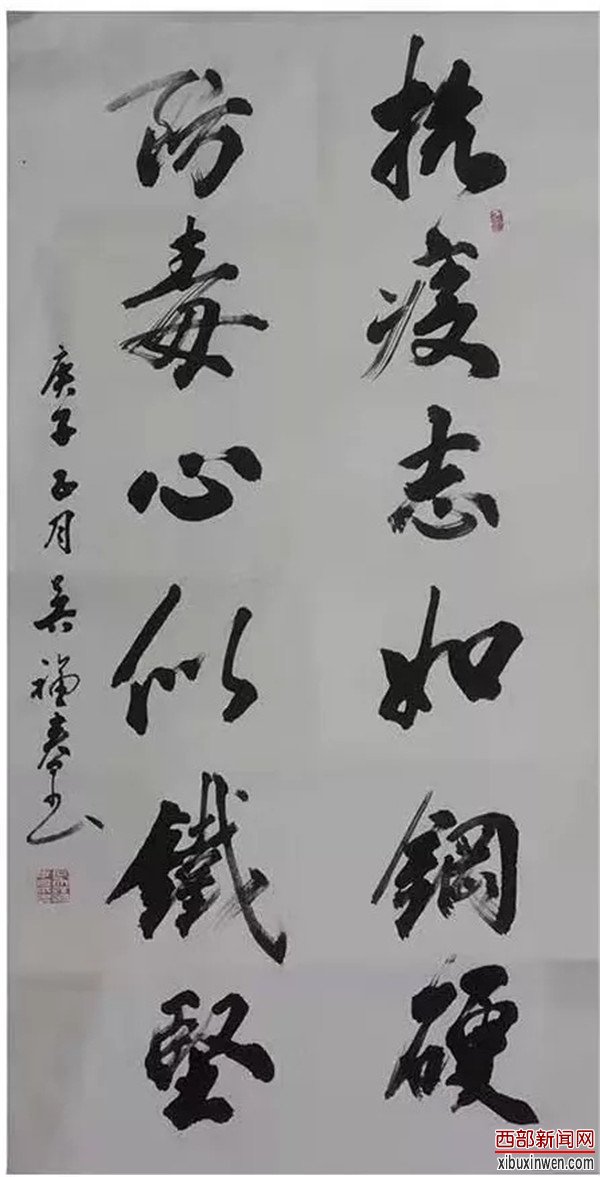 抗疫志如鋼硬
防毒心似鐵堅
庚子正月 吴福春书
西部新闻网
xibuxinwen.com